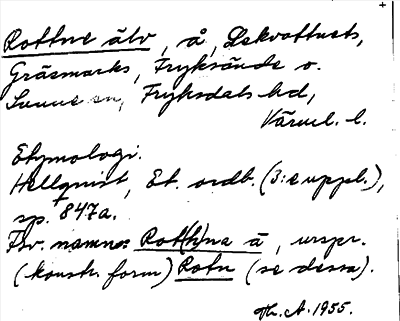 Rottne älv, å, Lekvattnets,
Gräsmarks, Fryksände o.
Sunne sn, Fryksdals hd,
Värml. l.
Etymologi.
Hellqvist, Et. ordb. (3:e uppl.),
sp. 847a.
Fsv. namn: Rot(h)na ā, urspr.
(konstr. form) Rotn (se dessa).
Th. A. 1955.